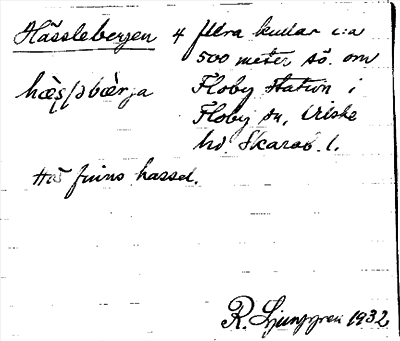 Hässlebergen 4 flera kullar c:a
500 meter sö. om
hæ̀ʂḷbæ̀rja Floby station i
Floby sn, Vilske
hd. Skarab. l.
Här finns hassel.
R. Ljunggren 1932